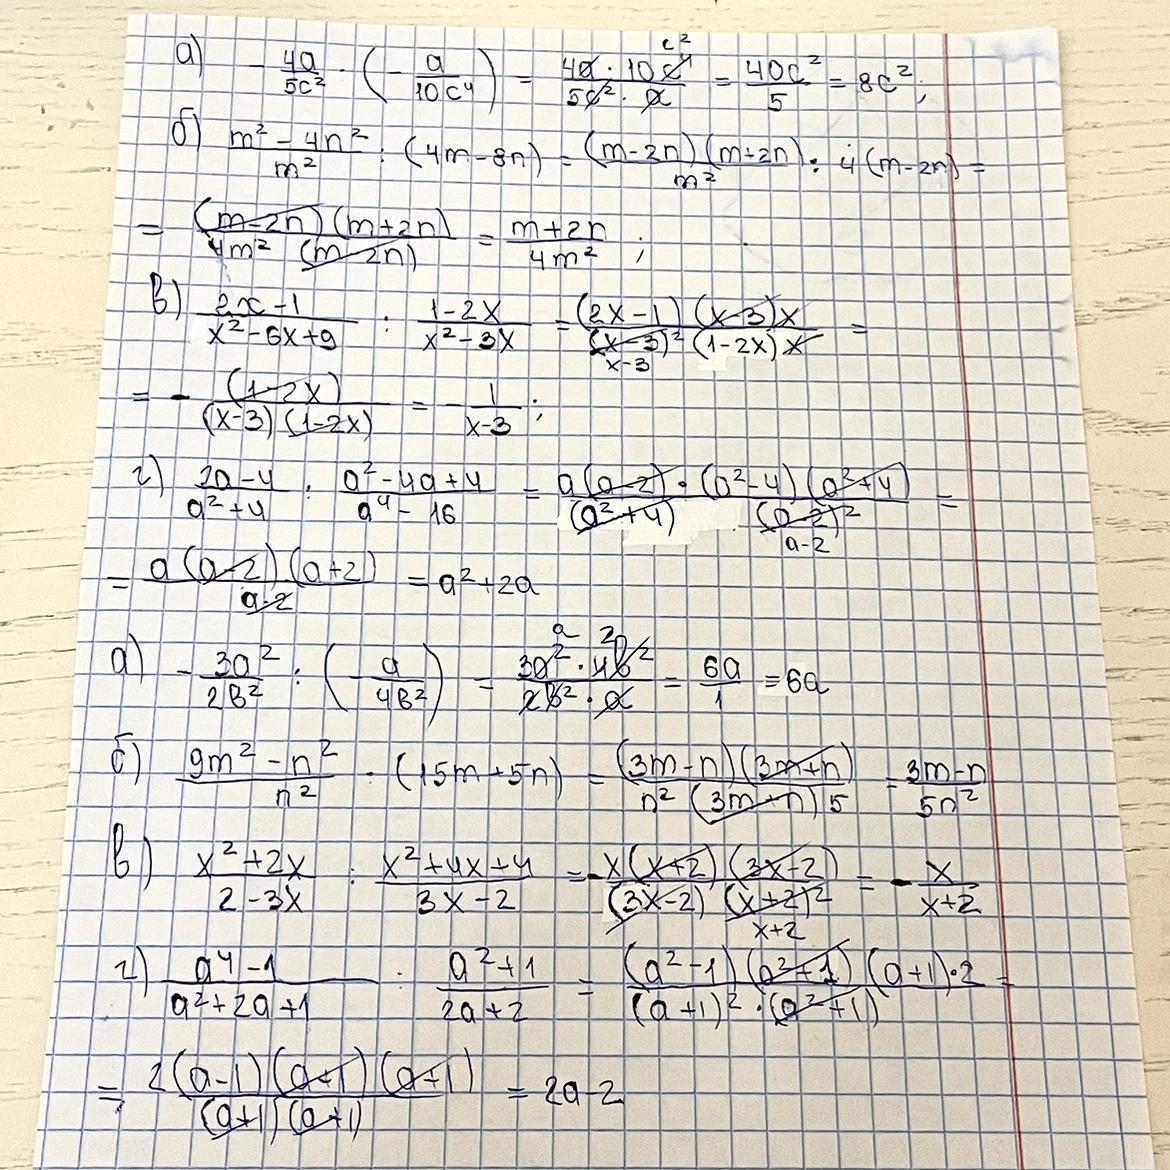 а) - 4a/5c² : (- a/10c⁴) = 4a · 10c⁴ c²/5c² · a = 40c²/5 = 8c²;
б) m² - 4n²/m² : (4m - 8n) = (m-2n)(m+2n)/m² : 4(m-2n) =
= (m-2n)(m+2n)/4m² (m-2n) = m+2n/4m² ;
в) 2x-1/x²-6x+9 : 1-2x/x²-3x = (2x-1)(x-3)x/(x-3)² (1-2x)x x-3 =
= - (1-2x)/(x-3)(1-2x) = - 1/x-3 ;
г) 2a-4/a²+4 : a²-4a+4/a⁴-16 = a(a-2)·(a²-4)(a²+4)/(a²+4) (a-2)² a-2 =
= a(a-2)(a+2)/a-2 = a²+2a
а) - 3a²/2b² : (- a/4b²) = 3a² a · 4b² 2/2b² · a = 6a/1 = 6a
б) 9m² - n²/n² : (15m+5n) = (3m-n)(3m+n)/n² (3m+n)5 = 3m-n/5n²
в) x²+2x/2-3x : x²+4x+4/3x-2 = - x(x+2)(3x-2)/(3x-2)(x+2)² x+2 = - x/x+2
г) a⁴-1/a²+2a+1 : a²+1/2a+2 = (a²-1)(a²+1)(a+1)·2/(a+1)²·(a²+1) =
= 2(a-1)(a+1)(a+1)/(a+1)(a+1) = 2a-2